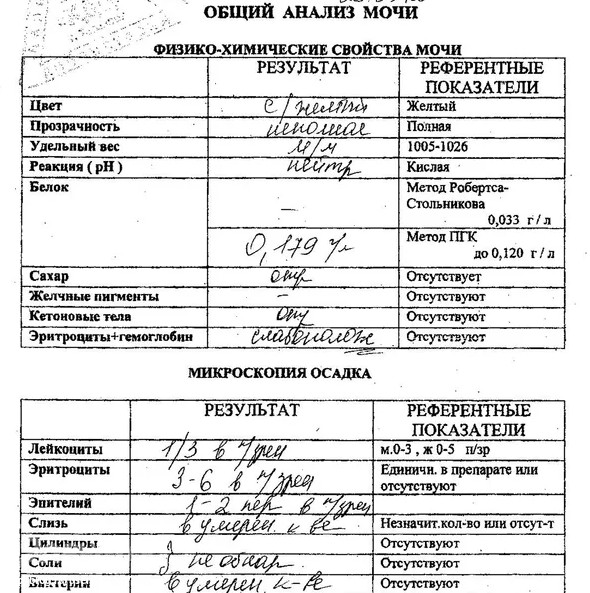 ОБЩИЙ АНАЛИЗ МОЧИ
ФИЗИКО-ХИМИЧЕСКИЕ СВОЙСТВА МОЧИ
РЕЗУЛЬТАТ РЕФЕРЕНТНЫЕ ПОКАЗАТЕЛИ
Цвет с/желтый Желтый
Прозрачность неполная Полная
Удельный вес м/м 1005-1026
Реакция ( pH ) нейтр Кислая
Белок – Метод Робертса-
Стольникова
0,033 г / л
0,179 г/л Метод ПГК
до 0,120 г / л
Сахар отр Отсутствует
Желчные пигменты – Отсутствуют
Кетоновые тела отр Отсутствуют
Эритроциты+гемоглобин слабополож Отсутствуют
МИКРОСКОПИЯ ОСАДКА
РЕЗУЛЬТАТ РЕФЕРЕНТНЫЕ ПОКАЗАТЕЛИ
Лейкоциты 1/3 в п/зрен м.0-3 , ж 0-5 п/зр
Эритроциты 3-6 в п/зрен Единичн. в препарате или
отсутствуют
Эпителий 1-2 пер в п/зрен
Слизь в умерен к-ве Незначит.кол-во или отсут-т
Цилиндры Отсутствуют
Соли не обнар. Отсутствуют
Бактерии в умерен. к-ве Отсутствуют